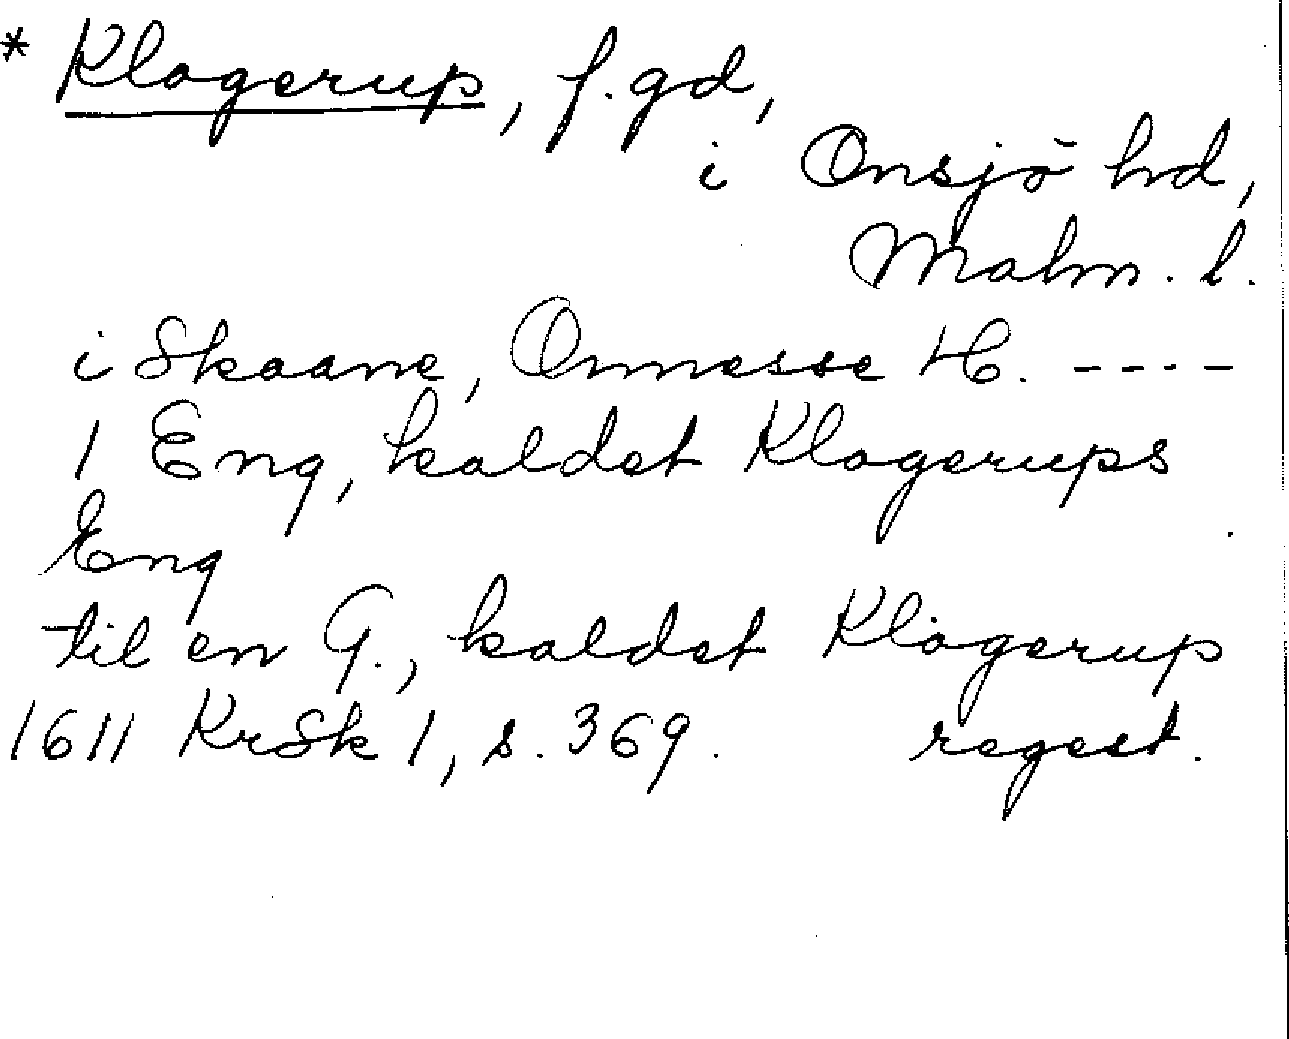 * Klagerup, f.gd,
i Onsjö hd,
Malm. l.
i Skaane, Onnesse H. ----
1 Eng, kaldet Klagerups
Eng
til en G., kaldet Klagerup
1611 KrSk 1, s. 369. regest.